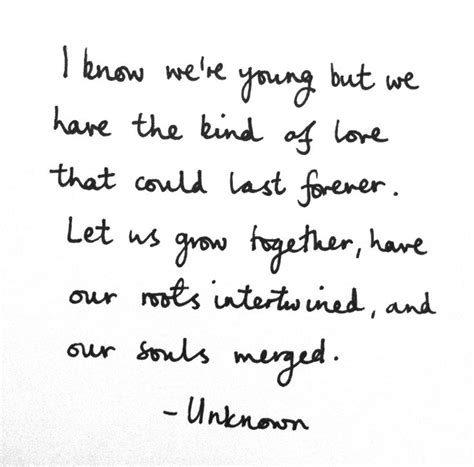 I know we're young but we
have the kind of love
that could last forever.
Let us grow together, have
our roots intertwined, and
our souls merged.
- Unknown